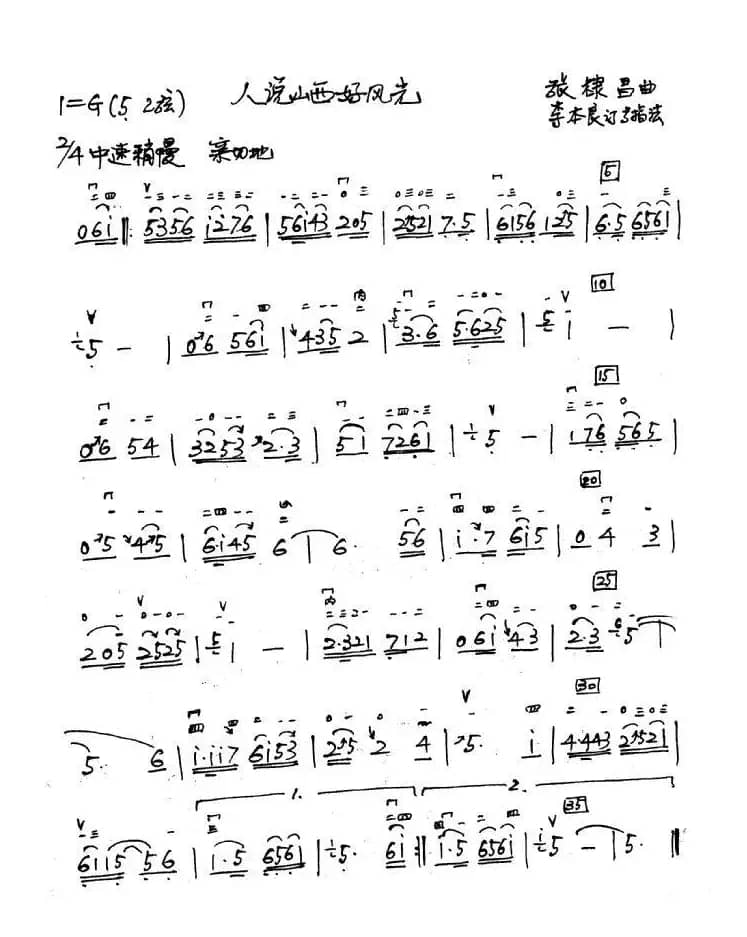 人说山西好风光
1=G(5̣ 2弦)
张棣昌曲
李本良订弓指法
2/4 中速稍慢 亲切地
0 6 i ‖: 5356 i276 | 56i43 205 | 2521 7.5 | 6156 125 | 6.5 6561 |
5 – | 06 56i | 435 2 | 3.6 5.625 | i – |
06 54 | 3253 2.3 | 51 7261 | 5 – | 176 565 |
05 45 | 6.i45 6 | 6. 56 | i.7 6i5 | 0 4 3 |
205 2525 | 1 – | 2.321 712 | 06i 43 | 2.3 5 |
5. 6 | i.ii7 6i53 | 25 2 4 | 5. i | 4.443 2521 |
1. 2.
6115 56 | 1.5 6561 | 5. 6i :‖ i.5 656i | 5 – | 5. ‖
5
10
15
20
25
30
35